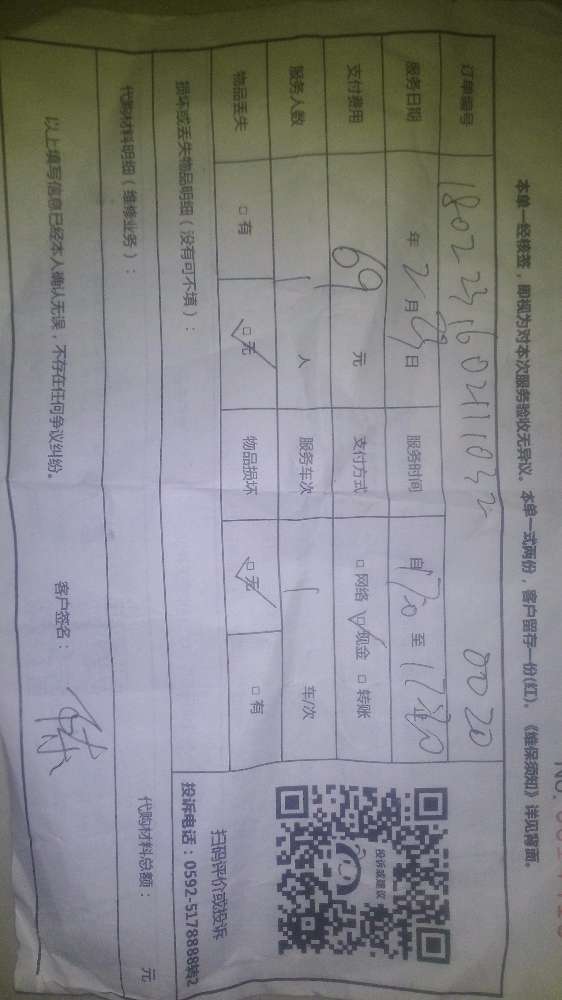 本单一经核签，即视为对本次服务验收无异议。本单一式两份，客户留存一份(红)。《维保须知》详见背面。
订单编号 0020
服务日期 年 2月23日 服务时间 自 至
支付费用 69 元 支付方式 □网络 ☑现金 □转账
服务人数 1 人 服务车次 1 车/次
物品丢失 □有 ☑无 物品损坏 ☑无 □有
损坏或丢失物品明细（没有可不填）：
投诉或建议
扫码评价或投诉
投诉电话：0592-5178888转2
代购材料明细（维修业务）： 代购材料总额： 元
以上填写信息已经本人确认无误，不存在任何争议纠纷。 客户签名：